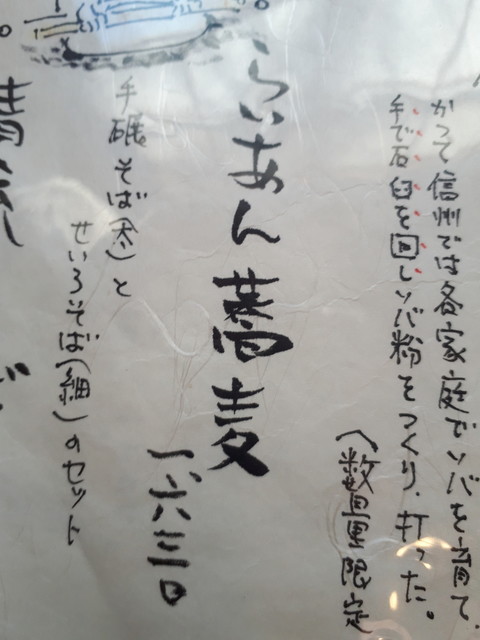 かつて信州では各家庭でソバを育て、
手で石臼を回しソバ粉をつくり、打った。
(数量限定
らいあん蕎麦
一、六三〇
手碾そば(太)と
せいろそば(細)のセット